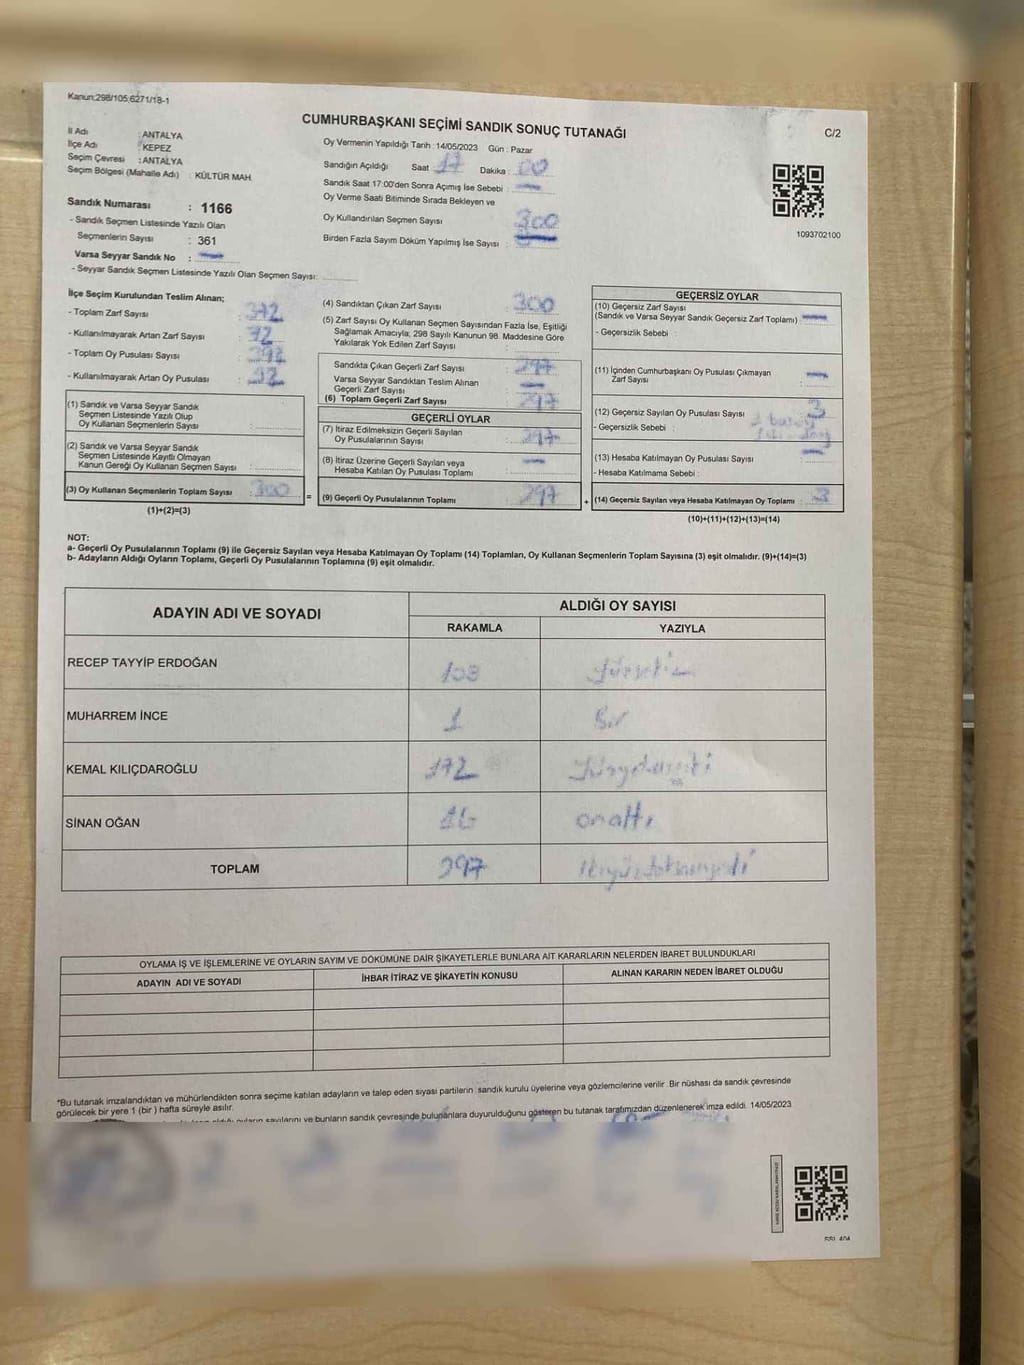 Kanun:298/105;6271/18-1
CUMHURBAŞKANI SEÇİMİ SANDIK SONUÇ TUTANAĞI
C/2
İl Adı : ANTALYA
İlçe Adı : KEPEZ
Seçim Çevresi : ANTALYA
Seçim Bölgesi (Mahalle Adı) : KÜLTÜR MAH.
Sandık Numarası : 1166
- Sandık Seçmen Listesinde Yazılı Olan
Seçmenlerin Sayısı : 361
Varsa Seyyar Sandık No : —
- Seyyar Sandık Seçmen Listesinde Yazılı Olan Seçmen Sayısı:
Oy Vermenin Yapıldığı Tarih : 14/05/2023 Gün : Pazar
Sandığın Açıldığı Saat 17 Dakika : 00
Sandık Saat 17:00'den Sonra Açımış İse Sebebi : —
Oy Verme Saati Bitiminde Sırada Bekleyen ve
Oy Kullandırılan Seçmen Sayısı 300
Birden Fazla Sayım Döküm Yapılmış İse Sayısı :
1093702100
İlçe Seçim Kurulundan Teslim Alınan;
- Toplam Zarf Sayısı : 372
- Kullanılmayarak Artan Zarf Sayısı : 72
- Toplam Oy Pusulası Sayısı :
- Kullanılmayarak Artan Oy Pusulası :
(1) Sandık ve Varsa Seyyar Sandık
Seçmen Listesinde Yazılı Olup
Oy Kullanan Seçmenlerin Sayısı :
(2) Sandık ve Varsa Seyyar Sandık
Seçmen Listesinde Kayıtlı Olmayan
Kanun Gereği Oy Kullanan Seçmen Sayısı :
(3) Oy Kullanan Seçmenlerin Toplam Sayısı : 300
(1)+(2)=(3)
(4) Sandıktan Çıkan Zarf Sayısı : 300
(5) Zarf Sayısı Oy Kullanan Seçmen Sayısından Fazla İse, Eşitliği
Sağlamak Amacıyla; 298 Sayılı Kanunun 98. Maddesine Göre
Yakılarak Yok Edilen Zarf Sayısı :
Sandıkta Çıkan Geçerli Zarf Sayısı : 297
Varsa Seyyar Sandıktan Teslim Alınan
Geçerli Zarf Sayısı : —
(6) Toplam Geçerli Zarf Sayısı : 297
GEÇERLİ OYLAR
(7) İtiraz Edilmeksizin Geçerli Sayılan
Oy Pusulalarının Sayısı : 297
(8) İtiraz Üzerine Geçerli Sayılan veya
Hesaba Katılan Oy Pusulası Toplamı : —
= (9) Geçerli Oy Pusulalarının Toplamı : 297
GEÇERSİZ OYLAR
(10) Geçersiz Zarf Sayısı
(Sandık ve Varsa Seyyar Sandık Geçersiz Zarf Toplamı) : —
- Geçersizlik Sebebi :
(11) İçinden Cumhurbaşkanı Oy Pusulası Çıkmayan
Zarf Sayısı : —
(12) Geçersiz Sayılan Oy Pusulası Sayısı : 3
- Geçersizlik Sebebi :
(13) Hesaba Katılmayan Oy Pusulası Sayısı : —
- Hesaba Katılmama Sebebi :
+ (14) Geçersiz Sayılan veya Hesaba Katılmayan Oy Toplamı : 3
(10)+(11)+(12)+(13)=(14)
NOT:
a- Geçerli Oy Pusulalarının Toplamı (9) ile Geçersiz Sayılan veya Hesaba Katılmayan Oy Toplamı (14) Toplamları, Oy Kullanan Seçmenlerin Toplam Sayısına (3) eşit olmalıdır. (9)+(14)=(3)
b- Adayların Aldığı Oyların Toplamı, Geçerli Oy Pusulalarının Toplamına (9) eşit olmalıdır.
ADAYIN ADI VE SOYADI ALDIĞI OY SAYISI
RAKAMLA YAZIYLA
RECEP TAYYİP ERDOĞAN 108 Yüzsekiz
MUHARREM İNCE 1 Bir
KEMAL KILIÇDAROĞLU 172 Yüzyetmişiki
SİNAN OĞAN 16 onaltı
TOPLAM 297 ikiyüzdoksanyedi
OYLAMA İŞ VE İŞLEMLERİNE VE OYLARIN SAYIM VE DÖKÜMÜNE DAİR ŞİKAYETLERLE BUNLARA AİT KARARLARIN NELERDEN İBARET BULUNDUKLARI
ADAYIN ADI VE SOYADI İHBAR İTİRAZ VE ŞİKAYETİN KONUSU ALINAN KARARIN NEDEN İBARET OLDUĞU
*Bu tutanak imzalandıktan ve mühürlendikten sonra seçime katılan adayların ve talep eden siyasi partilerin sandık kurulu üyelerine veya gözlemcilerine verilir. Bir nüshası da sandık çevresinde
görülecek bir yere 1 (bir ) hafta süreyle asılır.
sayılarını ve bunların sandık çevresinde bulunanlara duyurulduğunu gösteren bu tutanak tarafımızdan düzenlenerek imza edildi. 14/05/2023